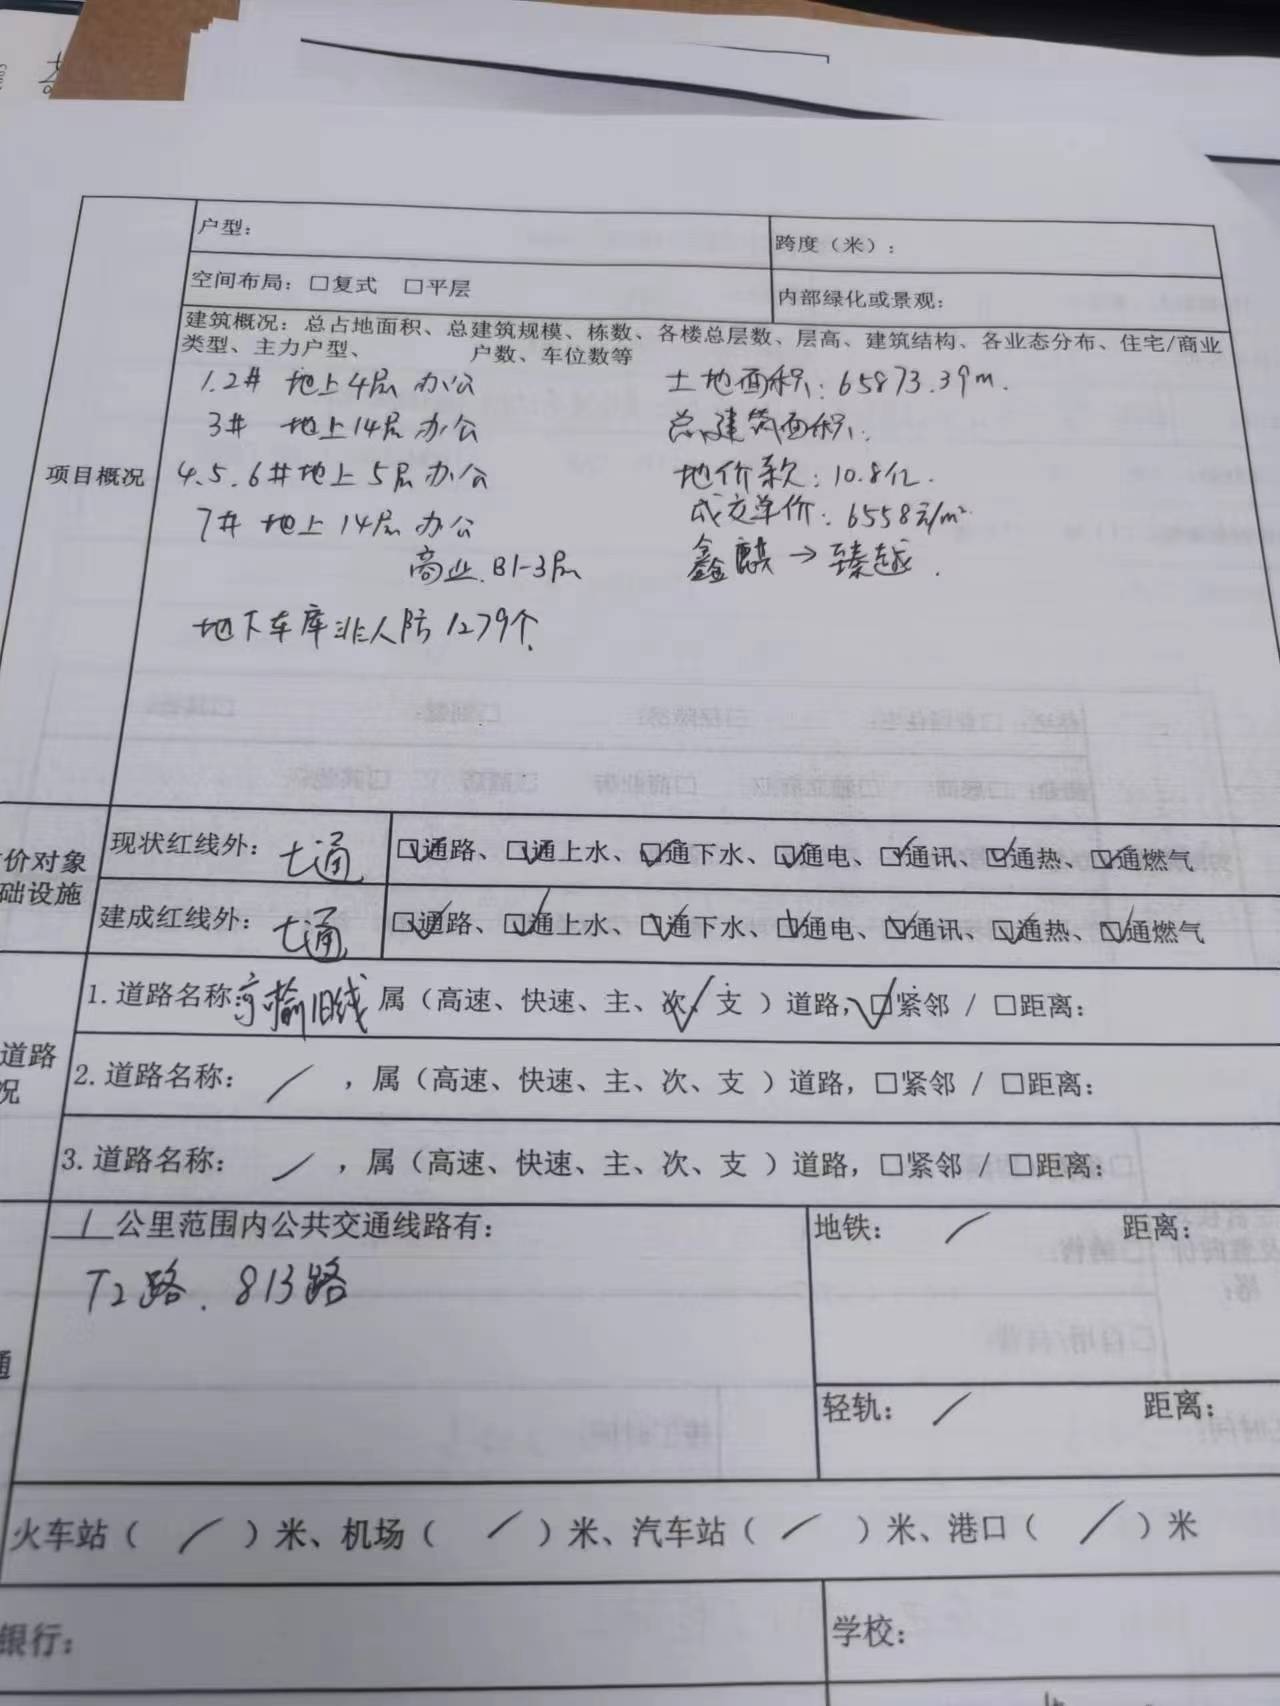 户型：
跨度（米）：
空间布局：□复式 □平层
内部绿化或景观：
建筑概况：总占地面积、总建筑规模、栋数、各楼总层数、层高、建筑结构、各业态分布、住宅/商业
类型、主力户型、 户数、车位数等
项目概况
1.2# 地上4层 办公
土地面积：65873.39m.
3# 地上14层 办公
总建筑面积：
4.5.6#地上5层办公
地价款：10.8亿.
7# 地上14层 办公
成交单价：6558元/m²
商业.B1-3层
鑫麒→臻越.
地下车库非人防1279个.
价对象
础设施
现状红线外：七通
☑通路、☑通上水、☑通下水、☑通电、☑通讯、☑通热、☑通燃气
建成红线外：七通
☑通路、☑通上水、☑通下水、☑通电、☑通讯、☑通热、☑通燃气
道路
况
1.道路名称 京榆旧线 属（高速、快速、主、次✓、支 ）道路，☑紧邻 / □距离：
2.道路名称： / ，属（高速、快速、主、次、支 ）道路，□紧邻 / □距离：
3.道路名称： / ，属（高速、快速、主、次、支 ）道路，□紧邻 / □距离：
通
1公里范围内公共交通线路有：
T2路.813路
地铁： / 距离：
轻轨： / 距离：
火车站（ / ）米、机场（ / ）米、汽车站（ / ）米、港口（ / ）米
银行：
学校：